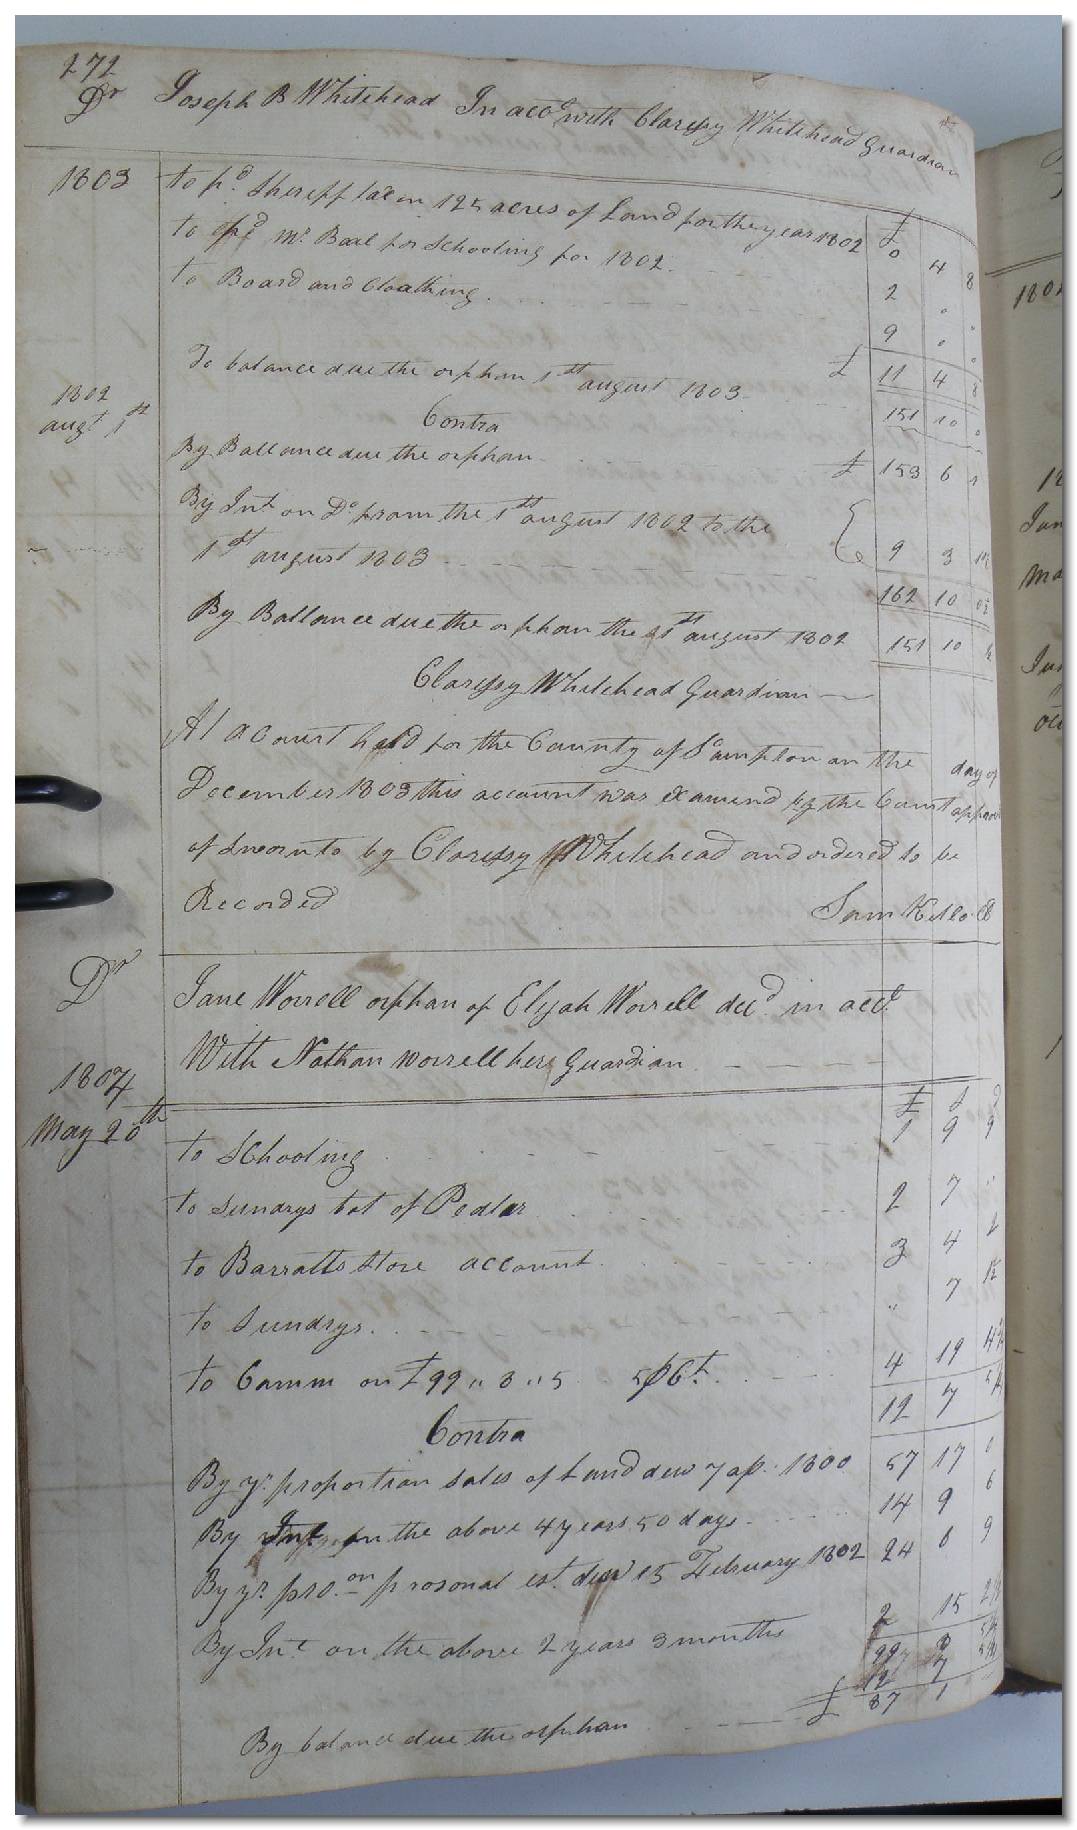 272
Dr Joseph B Whitehead In acct with Claressy Whitehead Guardian
£
1803 to pd. Sheriff tax on 125 acres of Land for the year 1802 0 4 8
to pd Mr. Beal for Schooling for 1802 2 " "
to Board and Cloathing 9 " "
£ 11 4 8
To balance due the orphan 1st august 1803 151 10 0
Contra
1802
augt 1st
By Ballance due the orphan £ 153 6 1
By Int on Do from the 1st august 1802 to the
1st august 1803 9 3
162 10
By Ballance due the orphan the 1st august 1802 151 10
Claressy Whitehead Guardian
At a Court held for the County of Sampson on the day of
December 1803 this account was examend by the Court
of sworn to by Claressy Whitehead and ordered to be
Recorded
Dr Jane Worrell orphan of Elijah Worrell decd. in acct
With Nathan worrell here Guardian
1804
May 20th
£ S D
to Schooling 1 9 9
to sundrys bot of Pedlar 2 7 "
to Barratts Store account 3 4 2
to Sundrys " 7 1½
to Comm on £99 " 3 " 5 5 pCt. 4 19
12 7
Contra
By yr. proportion sales of Land due 7 ap. 1800 57 17 0
By Int on the above 4 years 50 days 14 9 6
By yr. pro.on prosonal est. due 15 February 1802 24 0 9
By Int. on the above 2 years 3 months 2 15
99 3
12 7
By balance due the orphan £ 87 1